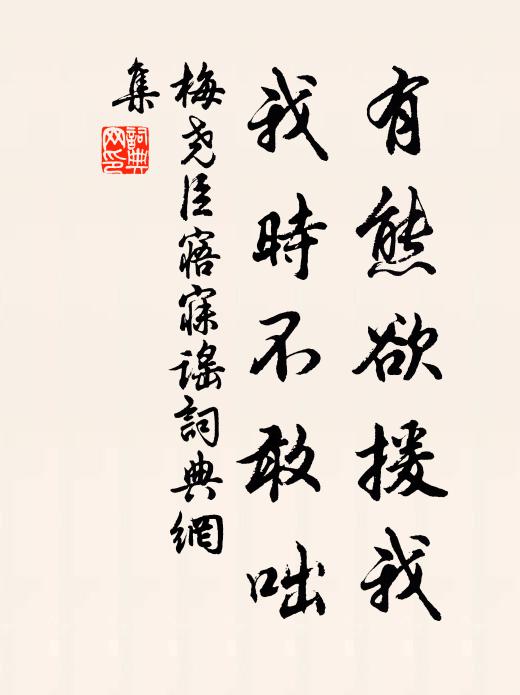 有熊欲援我
我時不敢咄
梅尧臣寤寐謠詞典網
集
詞典
网印